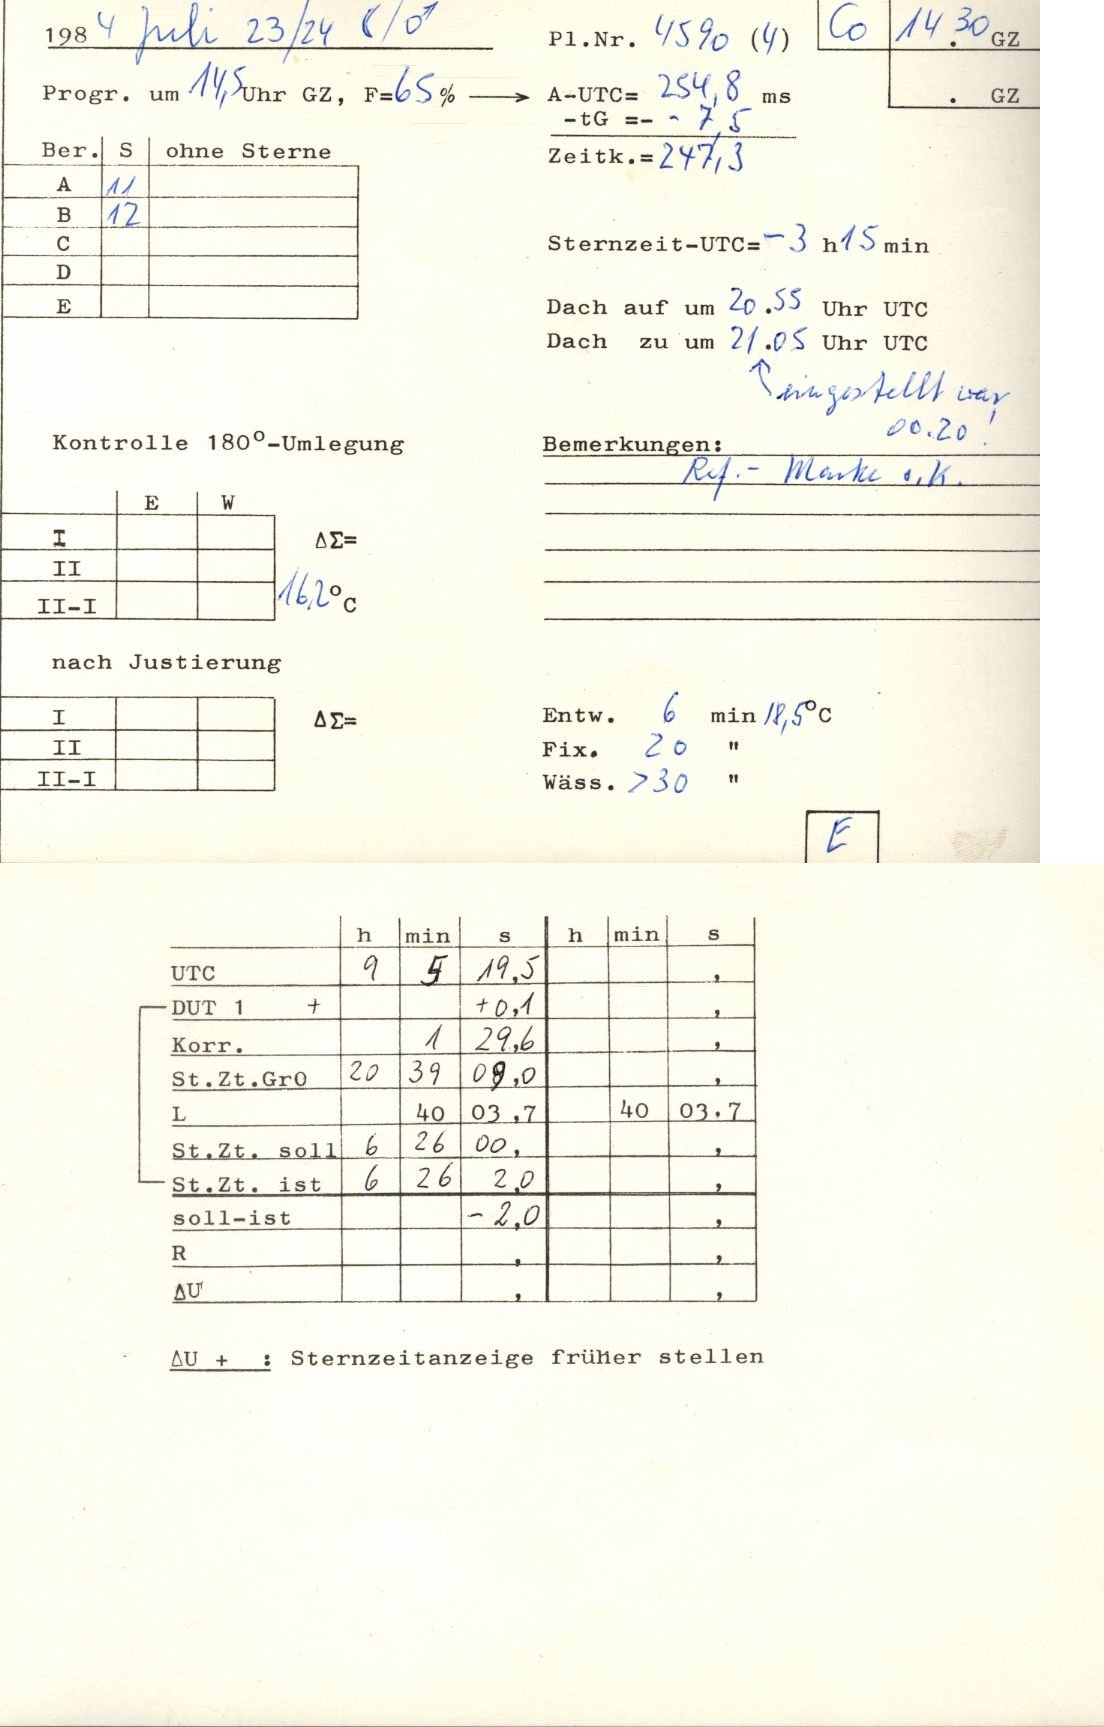 1984 Juli 23/24 ☾/♂
Pl.Nr. 4590 (4)
Co 14.30 GZ
. GZ
Progr. um 14,5 Uhr GZ, F=65% → A-UTC= 254,8 ms
-tG =- - 7,5
Zeitk.= 247,3
Ber. S ohne Sterne
A 11
B 12
C
D
E
Sternzeit-UTC= -3 h 15 min
Dach auf um 20.55 Uhr UTC
Dach zu um 21.05 Uhr UTC
↑ eingestellt war
00.20!
Kontrolle 180°-Umlegung
Bemerkungen:
Ref.- Marke o.K.
E W
I ΔΣ=
II
II-I 16,2°C
nach Justierung
I ΔΣ=
II
II-I
Entw. 6 min 18,5°C
Fix. 20 "
Wäss. >30 "
E
h min s h min s
UTC 9 5 19,5 ,
DUT 1 + +0,1 ,
Korr. 1 29,6 ,
St.Zt.Gr0 20 39 09,0 ,
L 40 03,7 40 03,7
St.Zt. soll 6 26 00, ,
St.Zt. ist 6 26 2,0 ,
soll-ist -2,0 ,
R , ,
ΔU , ,
ΔU + : Sternzeitanzeige früher stellen